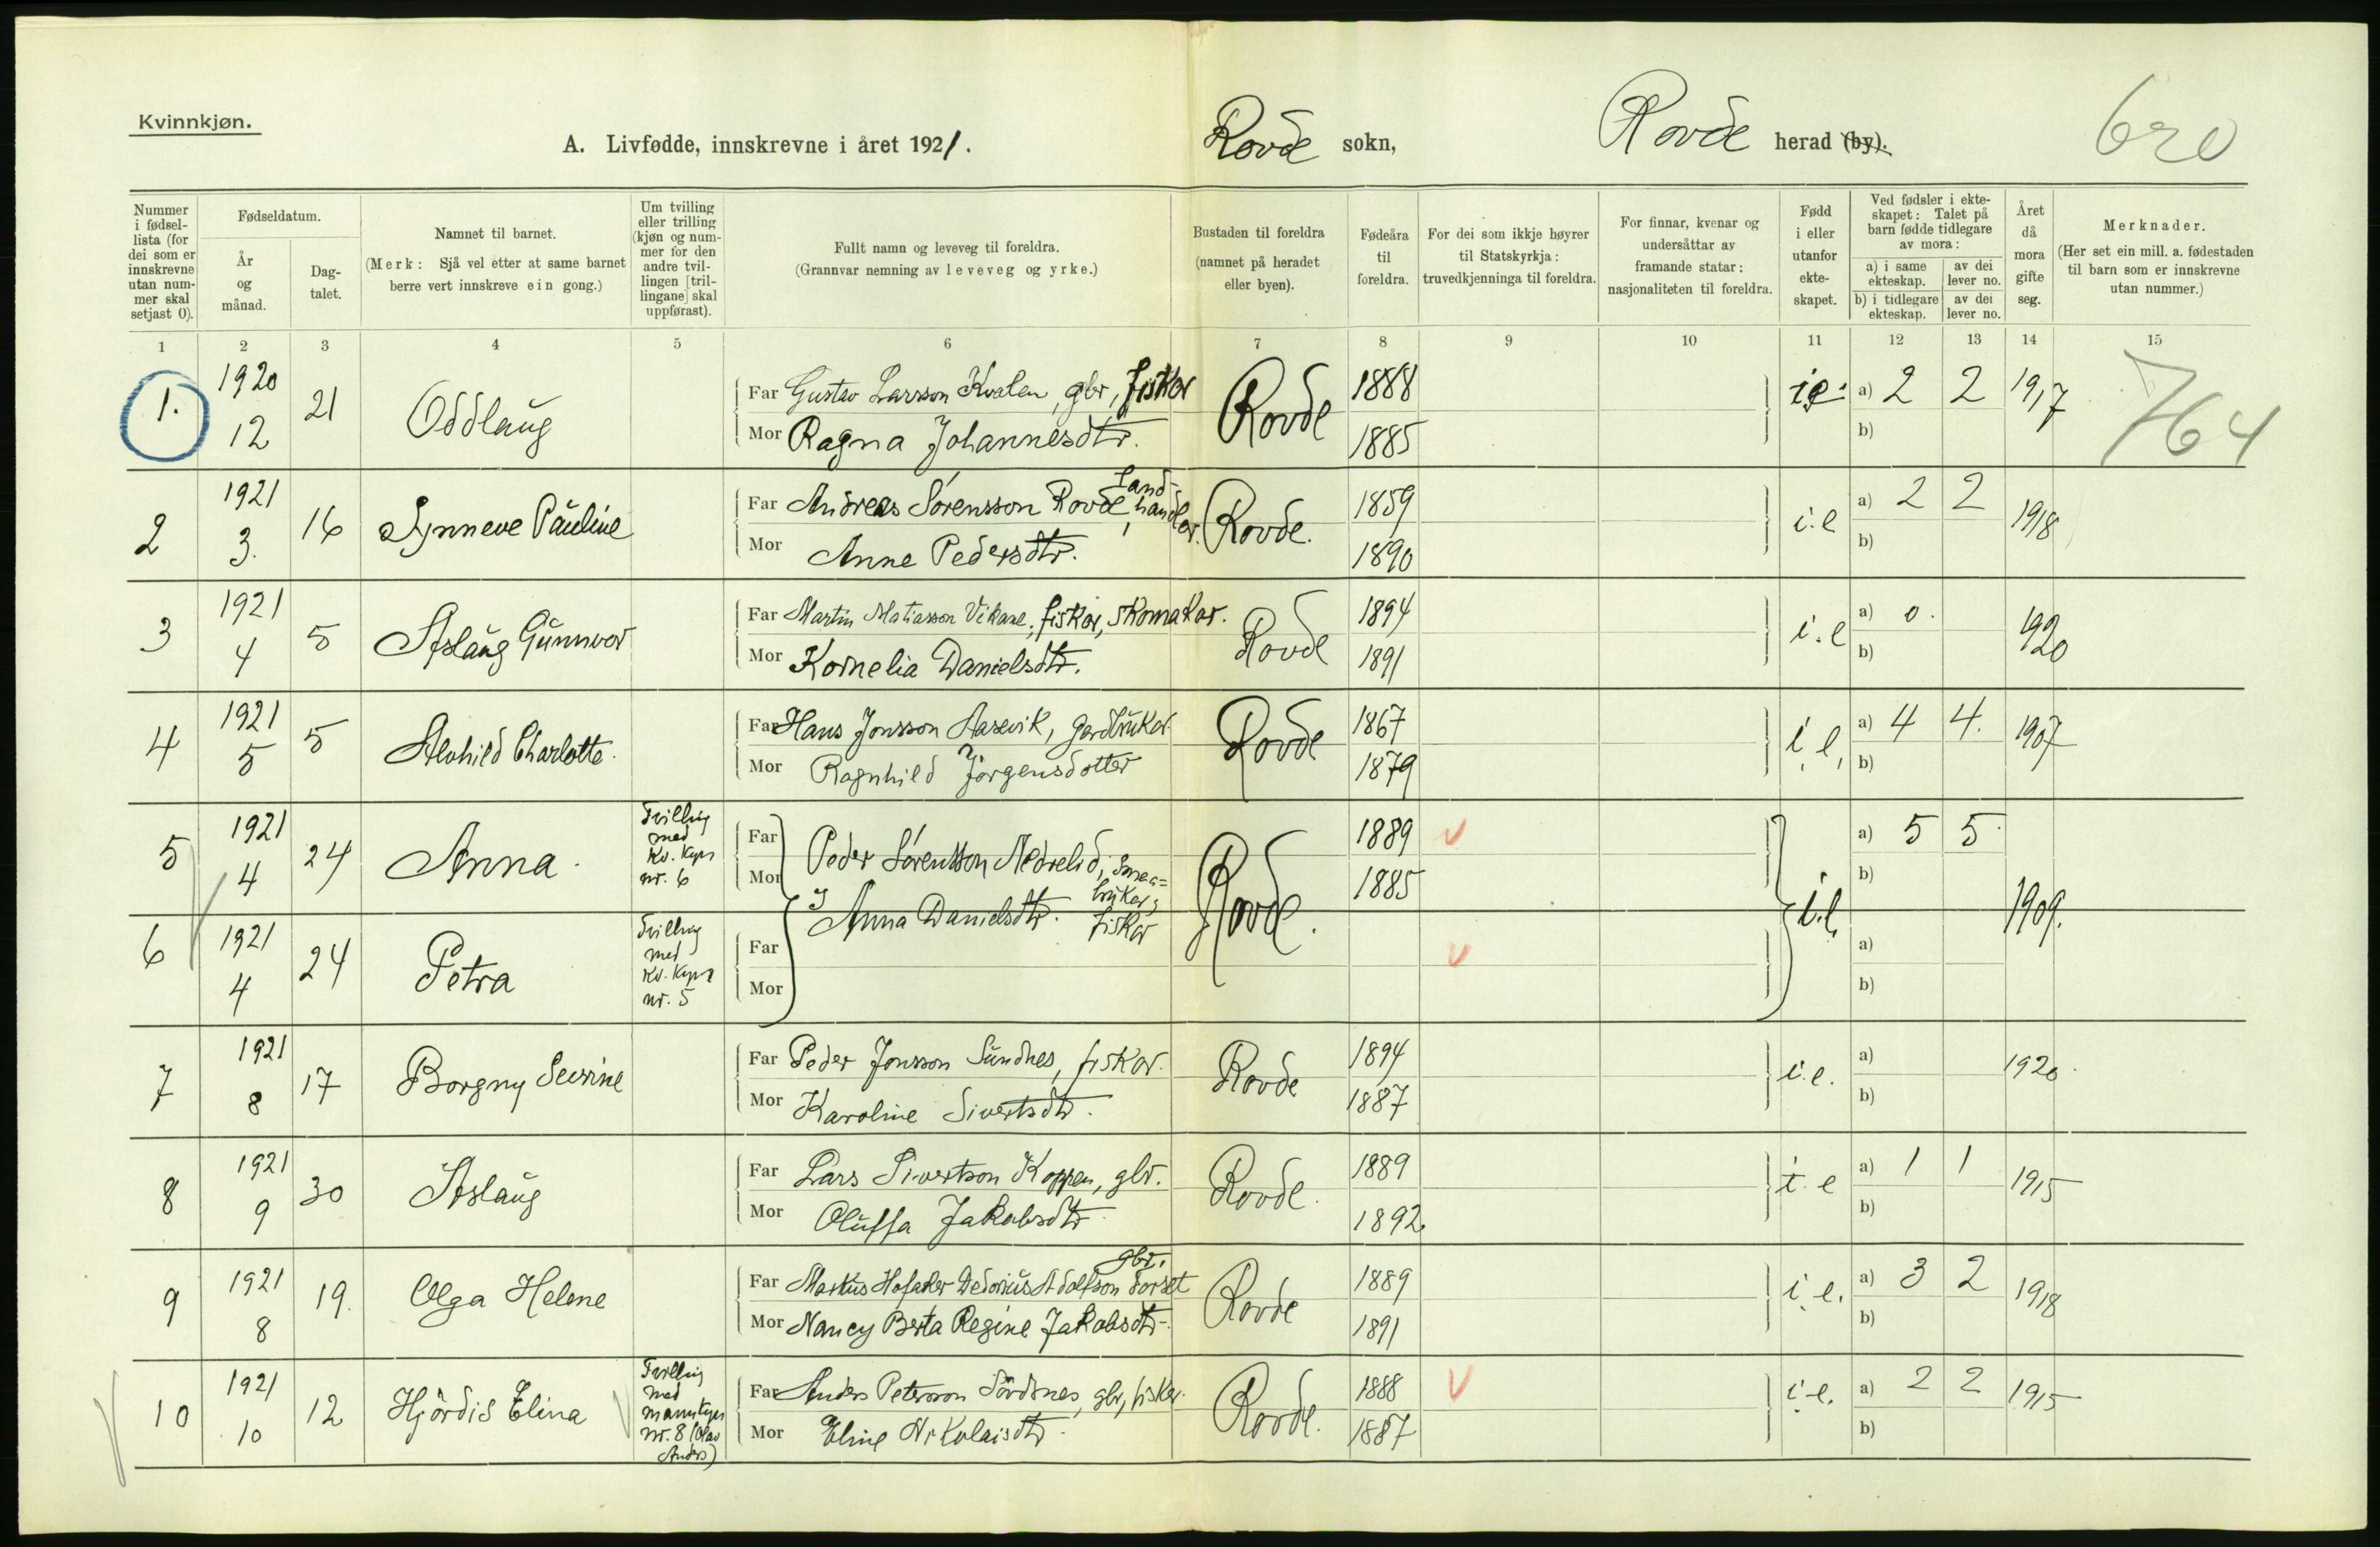 Kvinnkjøn.
A. Livfødde, innskrevne i året 1921. Rovde sokn, Rovde herad (by). 620
Nummer i fødsel-lista (for dei som er innskrevne utan num-mer skal setjast 0).
Fødseldatum.
År og månad.
Dag-talet.
Namnet til barnet.
(Merk: Sjå vel etter at same barnet berre vert innskreve ein gong.)
Um tvilling eller trilling (kjøn og num-mer for den andre tvil-lingen [tril-lingane] skal uppførast).
Fullt namn og leveveg til foreldra.
(Grannvar nemning av leveveg og yrke.)
Bustaden til foreldra (namnet på heradet eller byen).
Fødeåra til foreldra.
For dei som ikkje høyrer til Statskyrkja: truvedkjenninga til foreldra.
For finnar, kvenar og undersåttar av framande statar: nasjonaliteten til foreldra.
Fødd i eller utanfor ekte-skapet.
Ved fødsler i ekte-skapet: Talet på barn fødde tidlegare av mora:
a) i same ekteskap. av dei lever no.
b) i tidlegare ekteskap. av dei lever no.
Året då mora gifte seg.
Merknader.
(Her set ein mill. a. fødestaden til barn som er innskrevne utan nummer.)
1 2 3 4 5 6 7 8 9 10 11 12 13 14 15
1. 1920 12 21 Oddlaug Far Gustav Larsson Kvalen, gbr, fiskar Rovde 1888 i e. a) 2 2 1917 764
Mor Ragna Johannesdtr. 1885 b)
2 1921 3. 16 Synneve Pauline Far Andreas Sørensson Rovde, landhandlar. Rovde. 1859 i.e a) 2 2 1918
Mor Anne Pedersdtr. 1890 b)
3 1921 4 5 Aslaug Gunnvor Far Martin Matiasson Vikane, fiskar, skomakar. Rovde 1894 i.e a) 0. 1920
Mor Kornelia Danielsdtr. 1891 b)
4 1921 5 5 Alvhild Charlotte. Far Hans Jonsson Aasevik, gardbrukar Rovde 1867 i e, a) 4 4. 1907
Mor Ragnhild Jørgensdotter 1879 b)
5 1921 4 24 Anna. Tvilling med kv. kyn nr. 6 Far Mor Peder Sørensson Nedrelid, smaabrukar, fiskar Rovde. 1889 V i.e. a) 5 5. 1909.
Anna Danielsdtr. 1885 b)
6 1921 4 24 Petra Tvilling med kv. kyn nr. 5 Far V a)
Mor b)
7 1921 8 17 Borgny Severine Far Peder Jonsson Sundnes, fiskar. Rovde 1894 i.e. a) 1920.
Mor Karoline Sivertsdtr. 1887 b)
8 1921 9 30 Aslaug Far Lars Sivertson Koppen, gbr. Rovde. 1889 i.e a) 1 1 1915
Mor Oluffa Jakobsdtr. 1892 b)
9 1921 8 19. Olga Helene Far Markus Adolfson gbr. Rovde 1889 i e. a) 3 2 1918
Mor Nancy Berta Regine Jakobsdtr. 1891 b)
10 1921 10 12 Hjørdis Elina Tvilling med mannkyn nr. 8 (Olav Anders) Far Anders Petersson Sørdsnes, gbr, fiskar. Rovde. 1888 V i e. a) 2 2 1915
Mor Eline Nikolaisdtr. 1887 b)